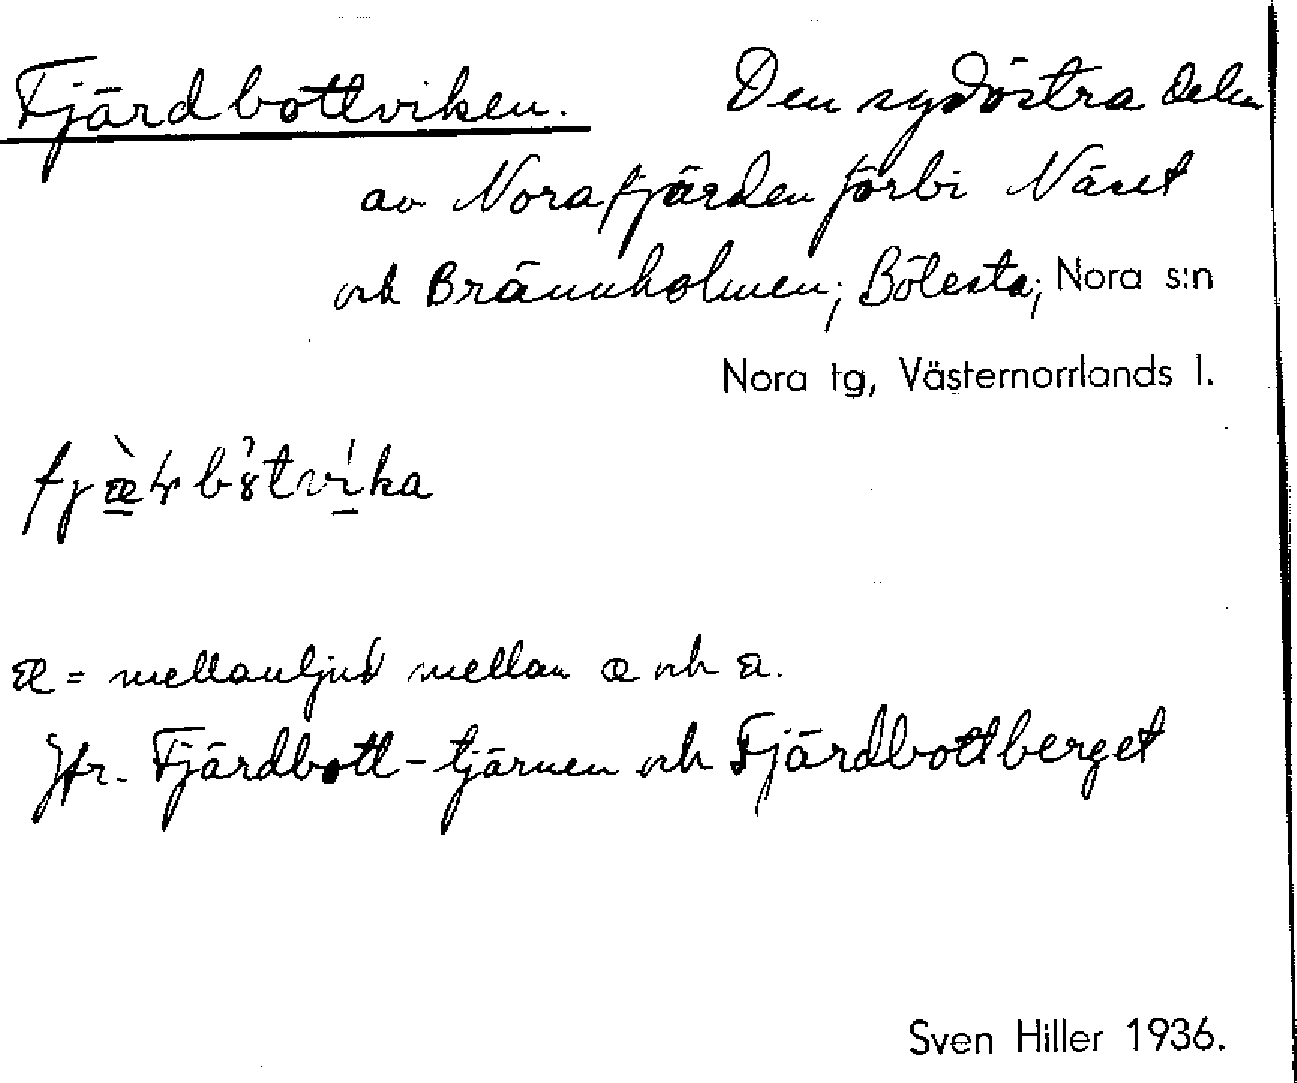 Fjärdbottviken. Den sydöstra delen
av Norafjärden förbi Näset
och Brännholmen; Bölesta; Nora s:n
Nora tg, Västernorrlands l.
æ = mellanljud mellan a och æ.
Jfr. Fjärdbott-tjärnen och Fjärdbottberget
Sven Hiller 1936.